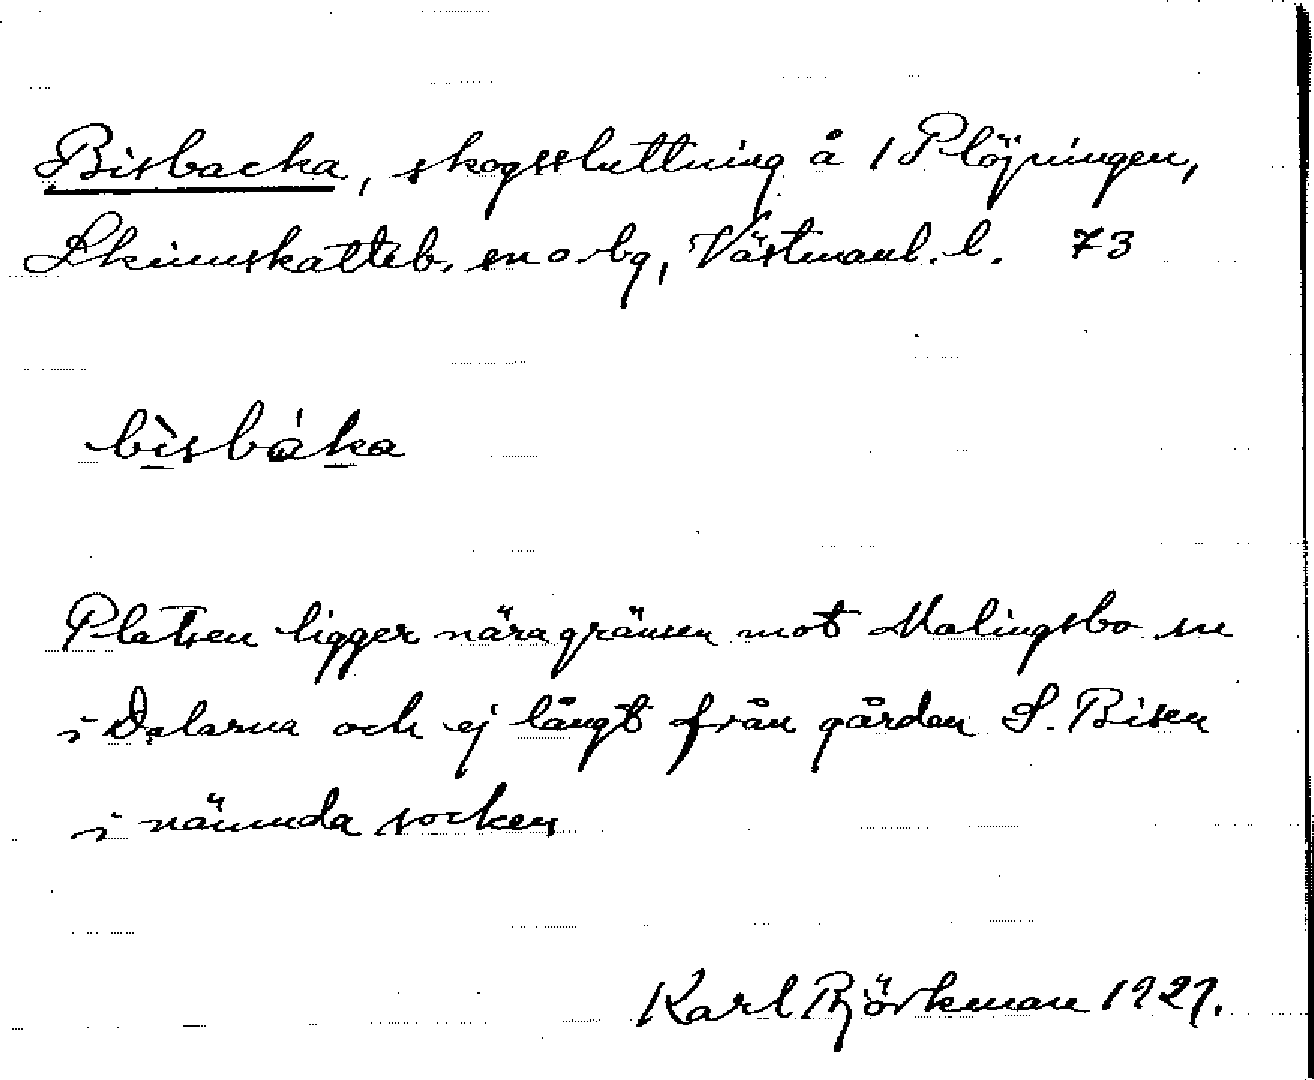 Bisbacka, skogssluttning å 1 Plöjningen,
Skinnskatteb. sn o bg, Västmanl. l. 73
bìsbáka
Platsen ligger nära gränsen mot Malingsbo sn
i Dalarna och ej långt från gården S. Bisen
i nämnda socken
Karl Björkman 1927.